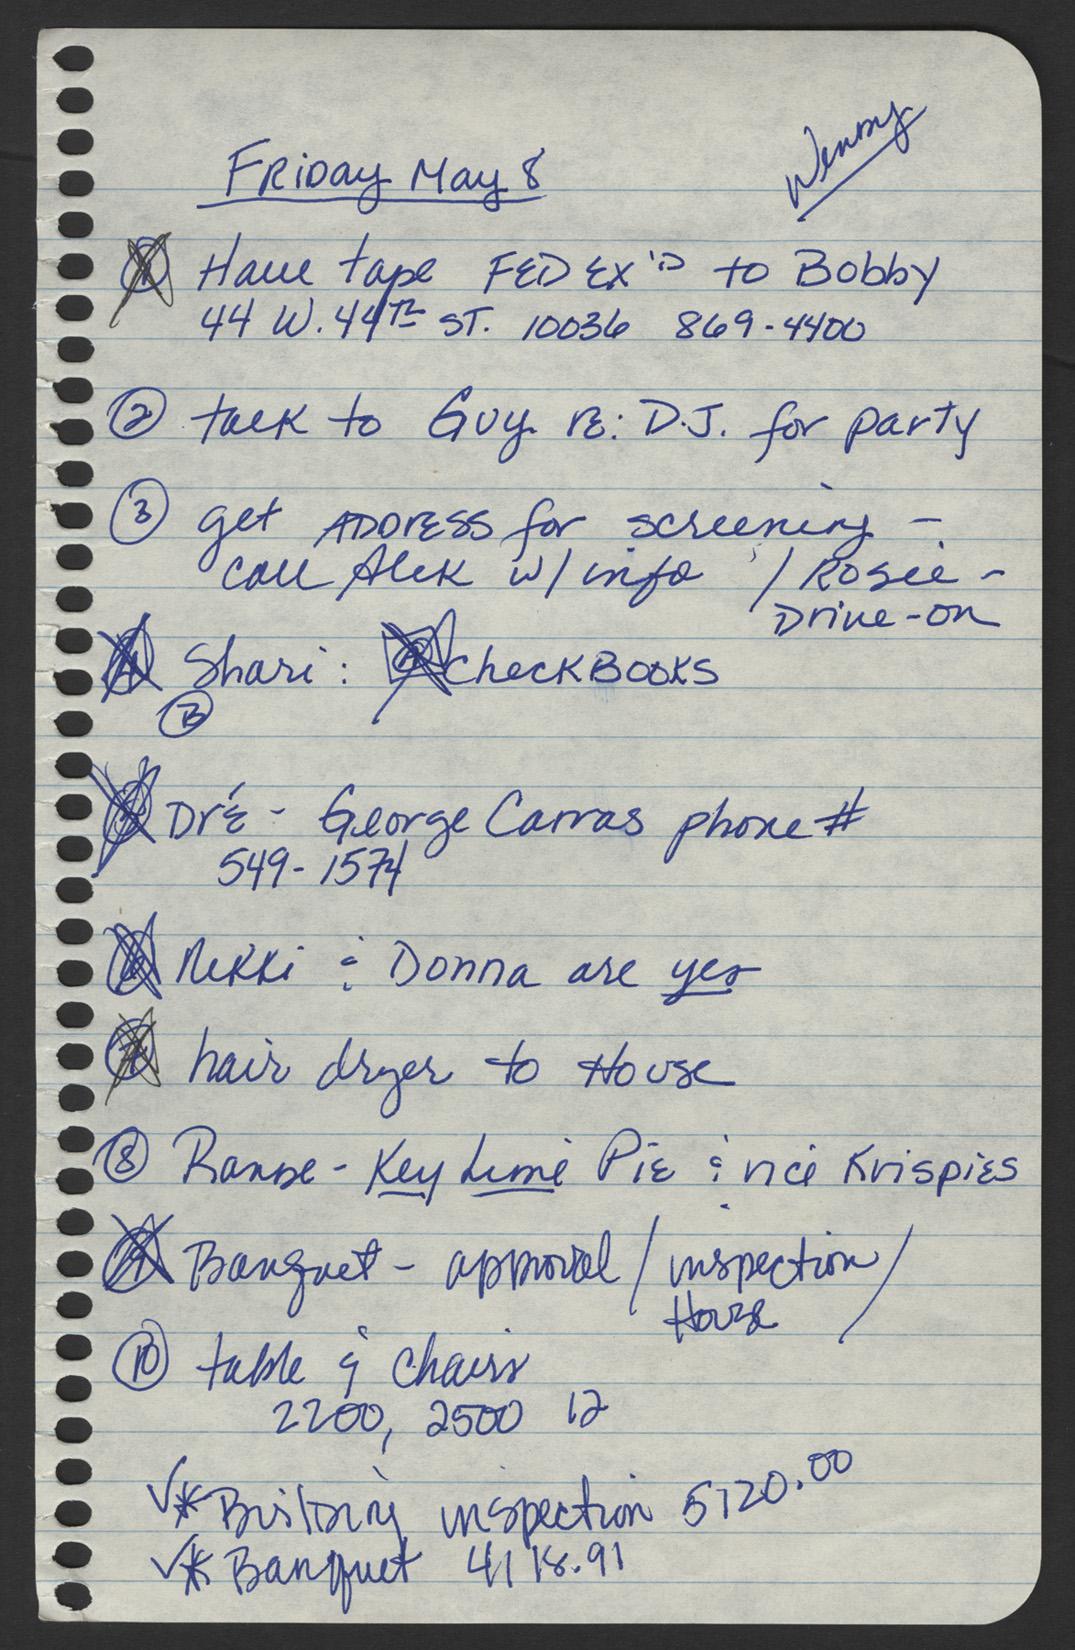 Wendy
Friday May 8
① Have tape FEDEX'D to Bobby
44 W. 44TH ST. 10036 869-4400
② talk to Guy RE: D.J. for party
③ get ADDRESS for screening -
call Alek w/ info / Rosie -
Drive-on
4 Shari: A CheckBooks
Ⓑ
5 Dré - George Carras phone #
549-1574
6 Nekki & Donna are yes
7 hair dryer to House
⑧ - Key Lime Pie & rice Krispies
9 Banquet - approval / inspection /
House
⑩ table & chairs
2200, 2500 12
✓* Building inspection 5720.00
✓* Banquet 4118.91